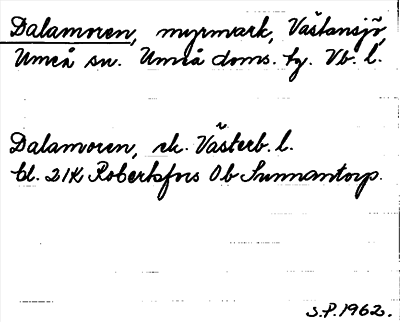 Dalamoren, myrmark, Västansjö,
Umeå sn. Umeå doms. tg. Vb. l.
Dalamoren, ek. Västerb. l.
bl. 21K Robertsfors 0b Sunnantorp.
S.P. 1962.